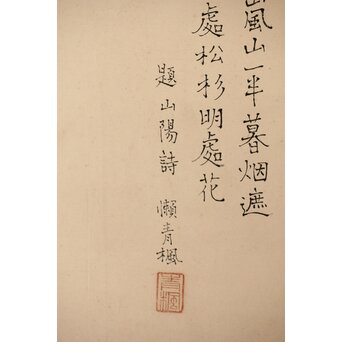 嵐山一半暮烟遮
處松杉明處花
題山陽詩 懶青楓
青楓